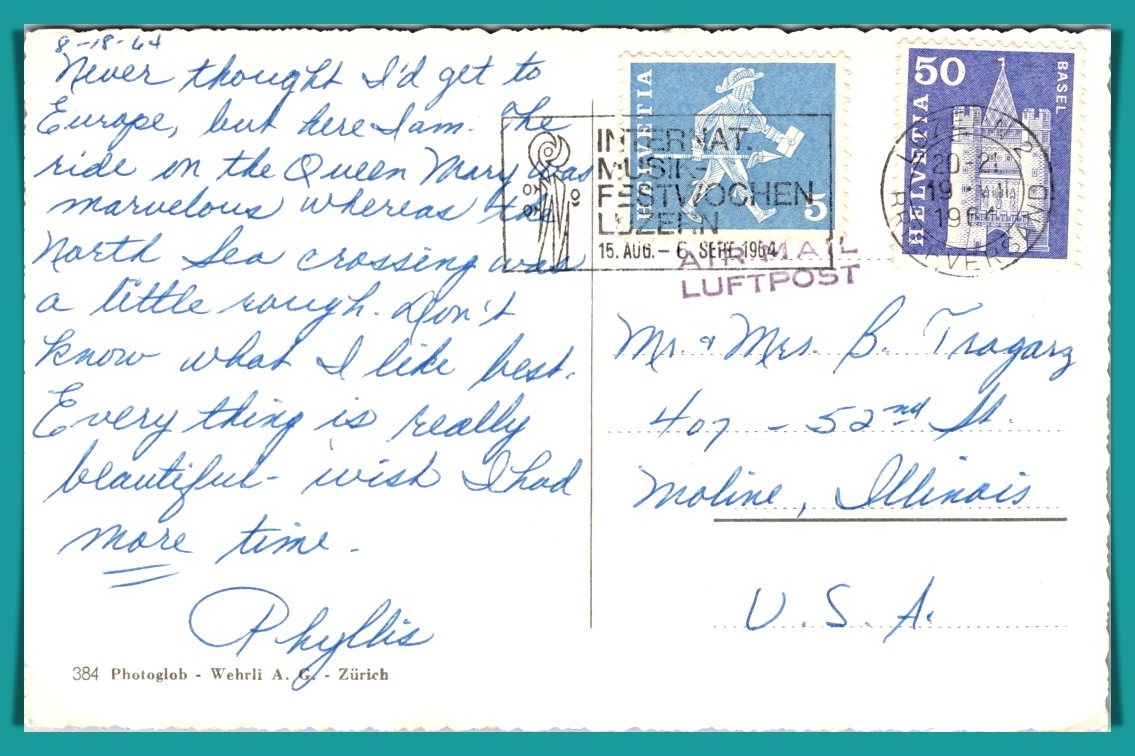 8-18-64
Never thought I'd get to
Europe, but here I am. The
ride on the Queen Mary was
marvelous whereas the
North Sea crossing was
a little rough. Don't
know what I like best.
Every thing is really
beautiful - wish I had
more time.
Phyllis
384 Photoglob - Wehrli A. G. - Zürich
HELVETIA
5
50
BASEL
HELVETIA
INTERNAT.
MUSIK-
FESTWOCHEN
LUZERN
15. AUG. - 6. SEPT. 1964
LUZERN 2
20-21
19
1964
BRIEFVERSAND
AIR MAIL
LUFTPOST
Mr. & Mrs. B. Tragarz
407 - 52nd St.
Moline, Illinois
U. S. A.